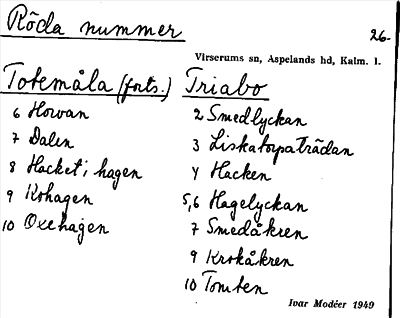 Röda nummer
26.
Virserums sn, Aspelands hd, Kalm. l.
Totemåla (forts.)
6 Horvan
7 Dalen
8 Hacket i hagen
9 Kohagen
10 Oxehagen
Triabo
2 Smedlyckan
3 Liskatorpaträdan
4 Hacken
5,6 Hagelyckan
7 Smedåkren
9 Krokåkren
10 Tomten
Ivar Modéer 1949